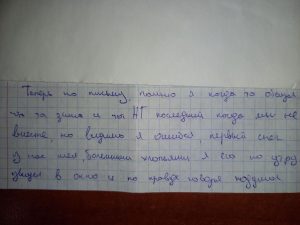 Теперь по письму, помню я когда то обещал
что та зима и ты НГ последний когда мы не
вместе, но видимо я ошибся, первый снег
у нас шел, большими хлопьями я его по утру
увидел в окно и по правде говоря